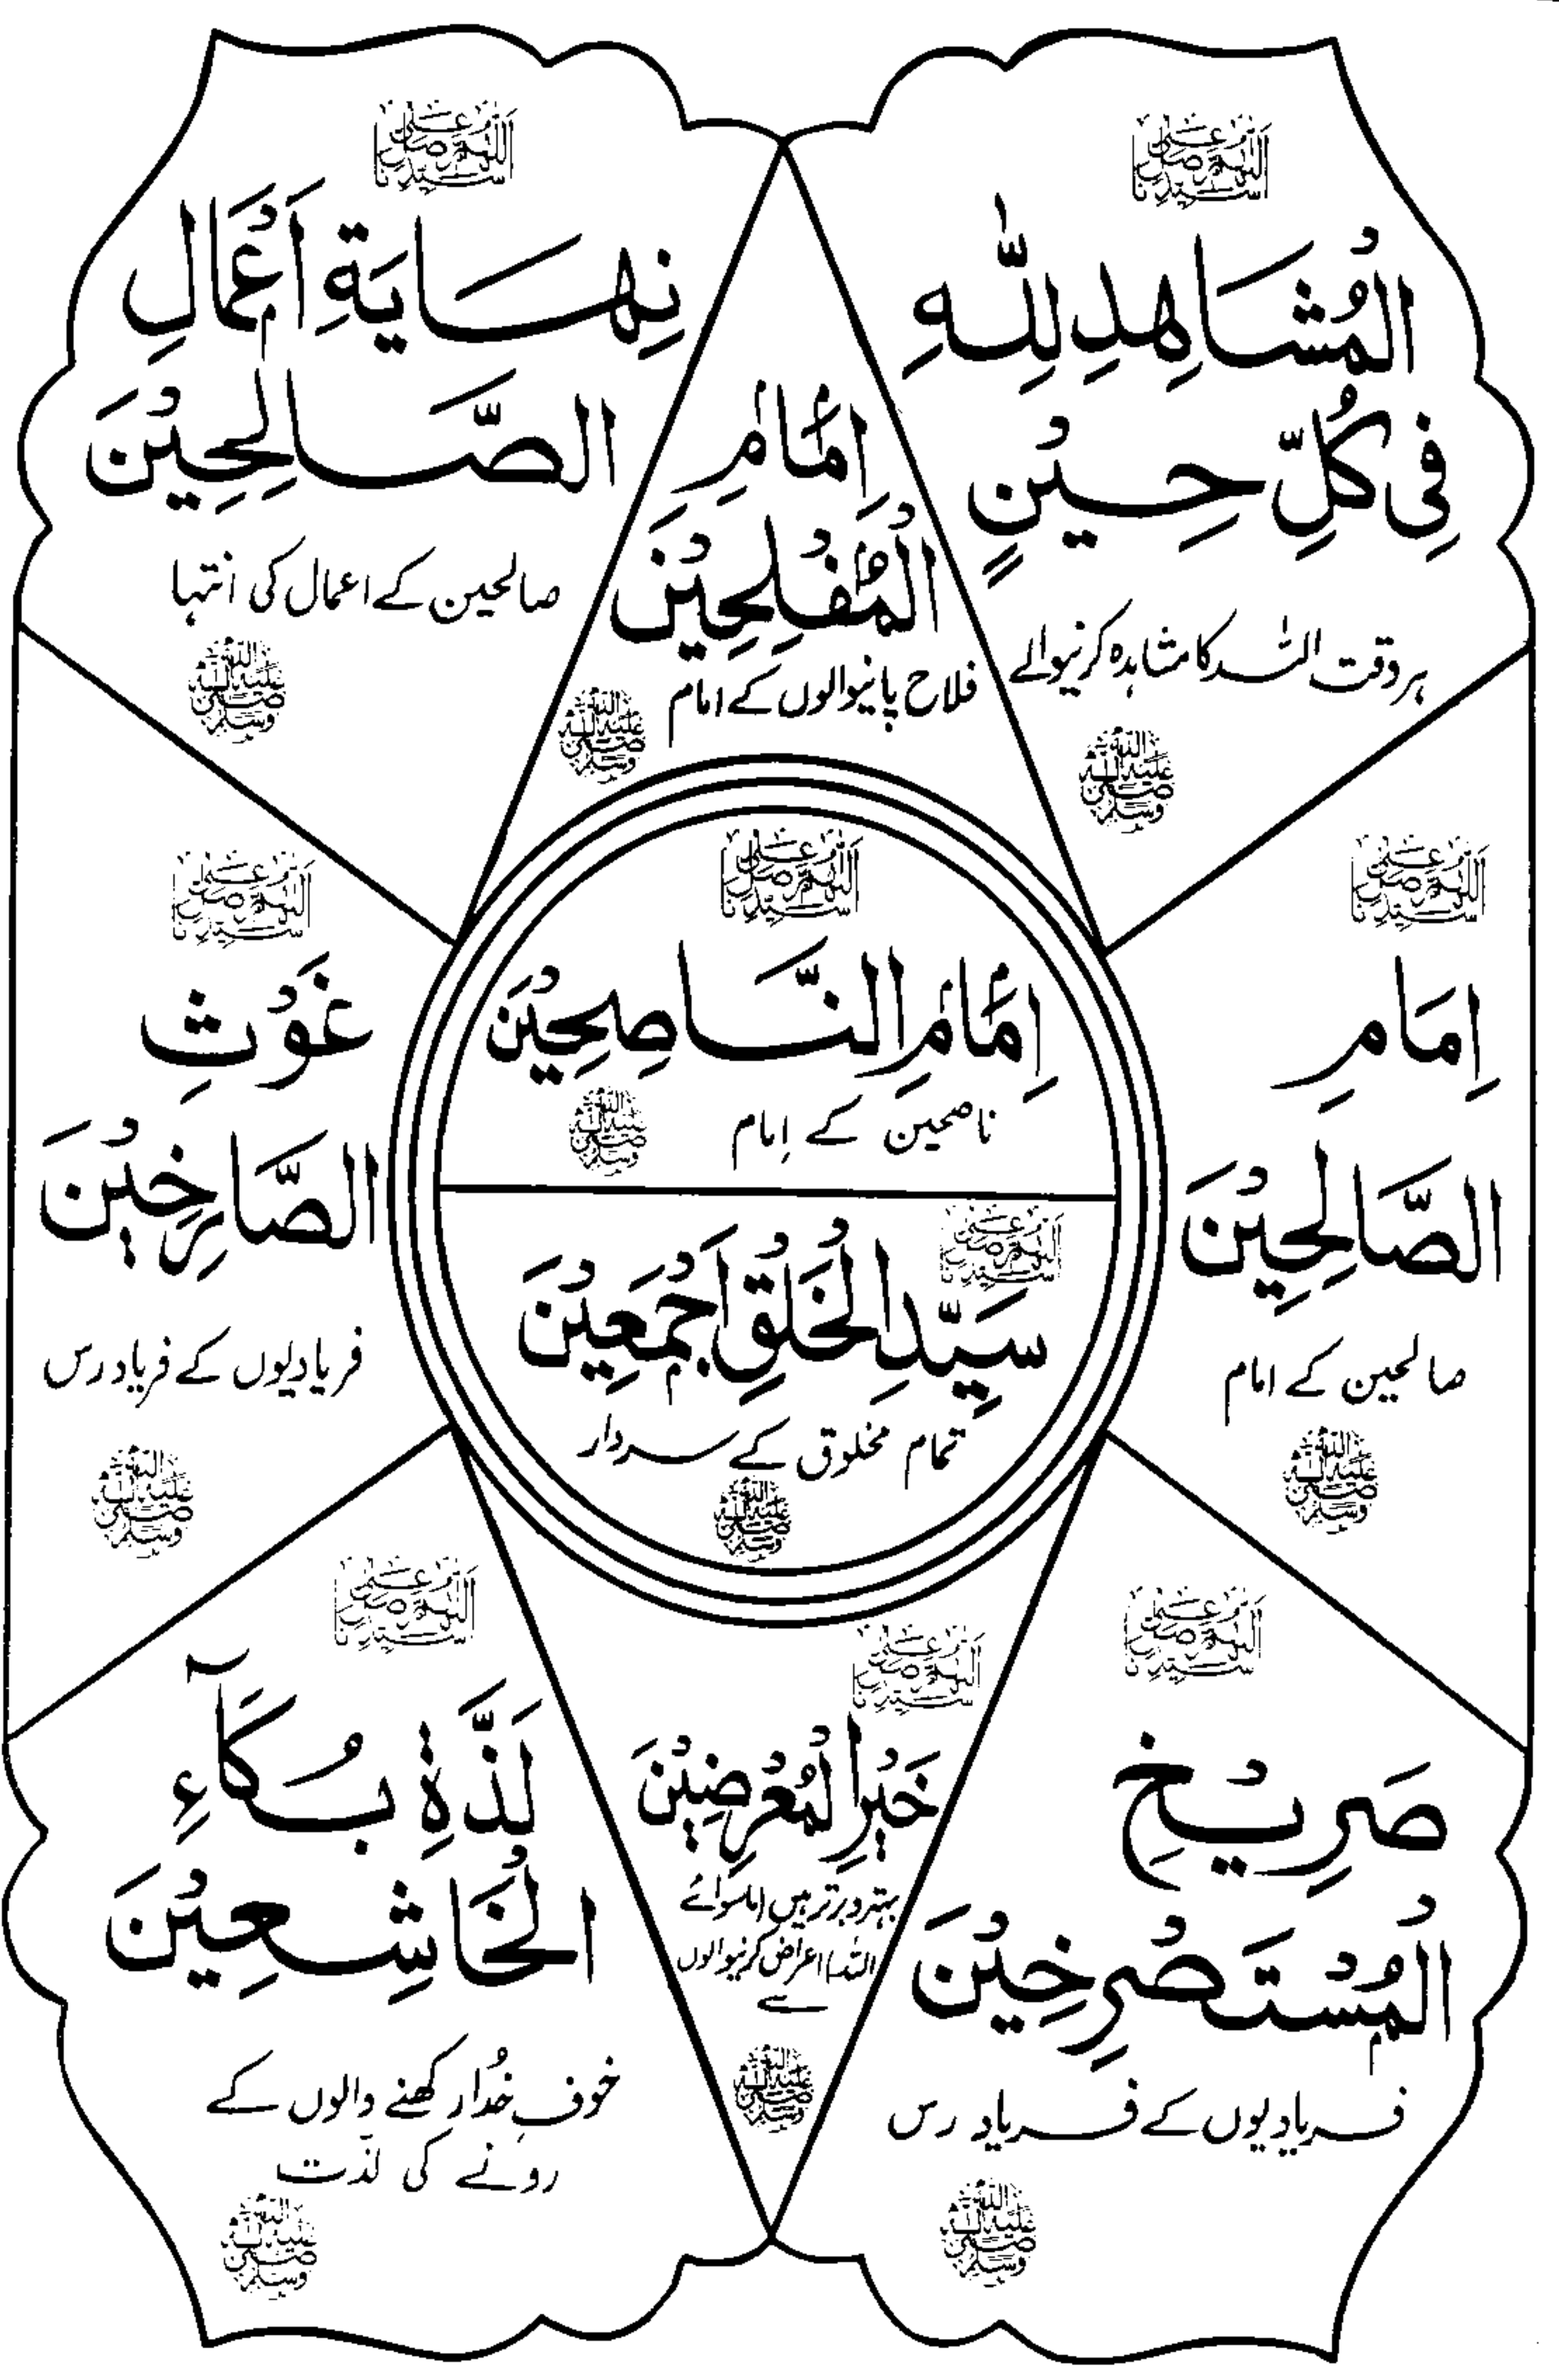 اللهم صل على سيدنا
الْمُشَاهِدِ لِلّٰهِ
فِي كُلِّ حِيْنٍ
ہر وقت اللہ کا مشاہدہ کرنیوالے
صلى الله عليه وسلم
اِمَامِ
الْمُفْلِحِيْنَ
فلاح پانیوالوں کے امام
صلى الله عليه وسلم
اللهم صل على سيدنا
نِهَايَةِ اَعْمَالِ
الصَّالِحِيْنَ
صالحین کے اعمال کی انتہا
صلى الله عليه وسلم
اللهم صل على سيدنا
اِمَامِ
الصَّالِحِيْنَ
صالحین کے امام
صلى الله عليه وسلم
اللهم صل على سيدنا
اِمَامِ النَّاصِحِيْنَ
ناصحین کے اِمام
صلى الله عليه وسلم
اللهم صل على سيدنا
سَيِّدِ الْخَلْقِ اَجْمَعِيْنَ
تمام مخلوق کے سردار
صلى الله عليه وسلم
اللهم صل على سيدنا
غَوْثِ
الصَّارِخِيْنَ
فریادیوں کے فریاد رس
صلى الله عليه وسلم
اللهم صل على سيدنا
صَرِيْخِ
الْمُسْتَصْرِخِيْنَ
فریادیوں کے فریاد رس
صلى الله عليه وسلم
اللهم صل على سيدنا
خَيْرِ الْمُعْرِضِيْنَ
بہتر و برتر ہیں ماسوائے
اللہ اعراض کرنیوالوں
سے
صلى الله عليه وسلم
اللهم صل على سيدنا
لَذَّةِ بُكَآءِ
الْخَاشِعِيْنَ
خوفِ خُدا رکھنے والوں کے
رونے کی لذت
صلى الله عليه وسلم